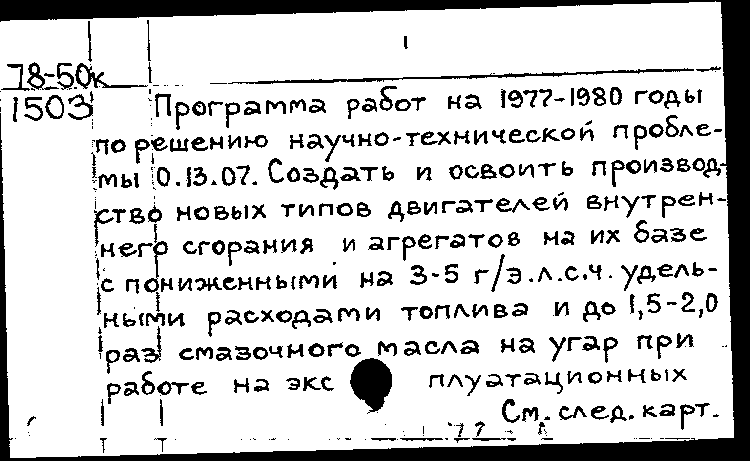 1
78-50к
1503 Программа работ на 1977-1980 годы
по решению научно-технической пробле-
мы 0.13.07. Создать и освоить производ-
ство новых типов двигателей внутрен-
него сгорания и агрегатов на их базе
с пониженными на 3-5 г/э.л.с.ч. удель-
ными расходами топлива и до 1,5-2,0
раз смазочного масла на угар при
работе на экс плуатационных
См. след. карт.